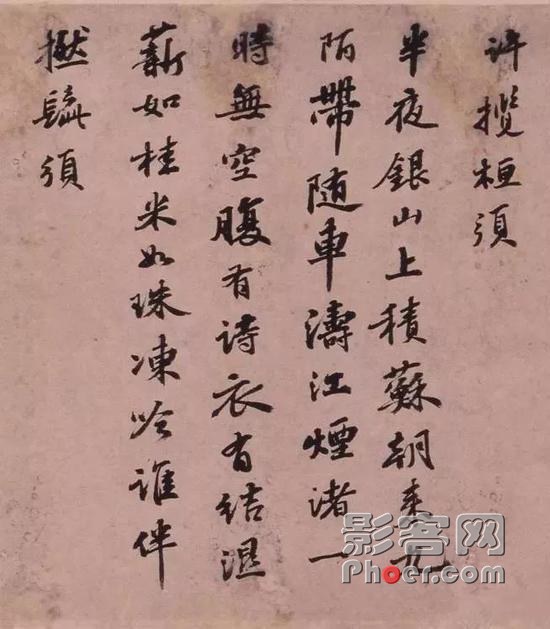 許攬桓須
半夜銀山上積蘇朝來九
陌帶随車濤江煙渚一
時無空腹有詩衣有結濕
薪如桂米如珠凍吟誰伴
撚髭須
影客网
Phoer.com